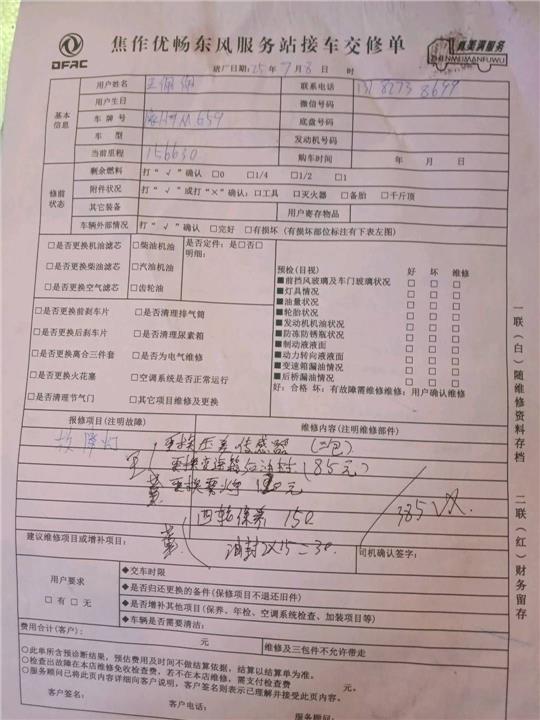 DFAC
焦作优畅东风服务站接车交修单
真美满服务
ZHENMEIMANFUWU
日期：25年7月8日 时
基本信息
用户姓名 联系电话
用户生日 微信号码
车牌号 底盘号码
车型 发动机号码
当前里程 156630 购车时间 年 月 日
修前状态
剩余燃料 打“√”确认 □0 □1/4 □1/2 □1
附件状况 打“√”或打“×”确认：□工具 □灭火器 □备胎 □千斤顶
其它装备 用户寄存物品
车辆外部情况 打“√”确认 □完好 □有损坏（有损坏部位标注有下表左图）
□是否更换机油滤芯 □柴油机油
□是否更换柴油滤芯 □汽油机油
□是否更换空气滤芯 □齿轮油
是否定件：是□否□
明细：
□是否更换前刹车片 □是否清理排气筒
□是否更换后刹车片 □是否清理尿素箱
□是否更换离合三件套 □是否为电气维修
□是否更换火花塞 □空调系统是否正常运行
□是否清理节气门 □其它项目维修及更换
预检(目视) 好 坏 维修
■前挡风玻璃及车门玻璃状况 □ □ □
■灯具情况 □ □ □
■油量状况 □ □ □
■轮胎状况 □ □ □
■发动机机油状况 □ □ □
■防冻防锈瓶状况 □ □ □
■制动液液面 □ □ □
■动力转向液液面 □ □ □
■变速箱漏油情况 □ □ □
■后桥漏油情况 □ □ □
好：合格 坏：有故障需维修维修：用户确认维修
报修项目(注明故障) 维修内容(注明维修部件)
更换压差传感器（三包）
更换变速箱后油封（85元）
更换 120元
四轮保养 150
油封2×15=30.
385
建议维修项目或增补项目： 司机确认签字：
用户要求
□有 □无
◆交车时限
◆是否归还更换的备件(保修项目不退还旧件)
◆是否增补其他项目(保养、年检、空调系统检查、加装项目等)
◆车辆是否需要清洁：
费用合计(客户)： 元 维修及三包件不允许带走
○此单所含预诊断结果，预估费用及时间不做结算依据，结算以结算单为准。
○检查出故障在本店维修免收检查费，若不在本店维修，需支付检查费 元。
○服务顾问已将此页内容详细向客户说明，客户签名则表示已理解并接受此页内容。
客户签名： 客户电话： 服务顾问：
一联（白）随维修资料存档
二联（红）财务留存